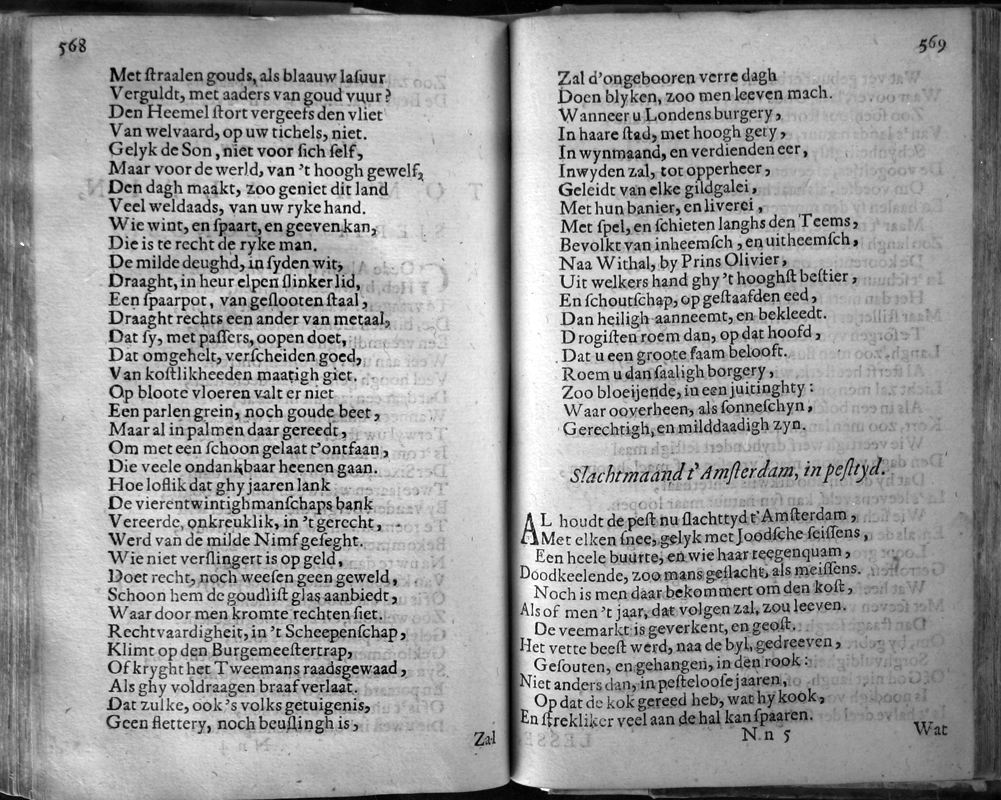 568
Met ſtraalen gouds, als blaauw laſuur
Verguldt, met aaders van goud vuur?
Den Heemel ſtort vergeefs den vliet
Van welvaard, op uw tichels, niet.
Gelyk de Son, niet voor ſich ſelf,
Maar voor de werld, van 't hoogh gewelf,
Den dagh maakt, zoo geniet dit land
Veel weldaads, van uw ryke hand.
Wie wint, en ſpaart, en geeven kan,
Die is te recht de ryke man.
De milde deughd, in ſyden wit,
Draaght, in heur elpen ſlinker lid,
Een ſpaarpot, van geſlooten ſtaal,
Draaght rechts een ander van metaal,
Dat ſy, met paſſers, oopen doet,
Dat omgehelt, verſcheiden goed,
Van koſtlikheeden maatigh giet.
Op bloote vloeren valt er niet
Een parlen grein, noch goude beet,
Maar al in palmen daar gereedt,
Om met een ſchoon gelaat t'ontfaan,
Die veele ondankbaar heenen gaan.
Hoe loflik dat ghy jaaren lank
De vierentwintighmanſchaps bank
Vereerde, onkreuklik, in 't gerecht,
Werd van de milde Nimf geſeght.
Wie niet verſlingert is op geld,
Doet recht, noch weeſen geen geweld,
Schoon hem de goudliſt glas aanbiedt,
Waar door men kromte rechten ſiet.
Rechtvaardigheit, in 't Scheepenſchap,
Klimt op den Burgemeeſtertrap,
Of kryght het Tweemans raadsgewaad,
Als ghy voldraagen braaf verlaat.
Dat zulke, ook 's volks getuigenis,
Geen flettery, noch beuſlingh is,
Zal
569
Zal d'ongebooren verre dagh
Doen blyken, zoo men leeven mach.
Wanneer u Londens burgery,
In haare ſtad, met hoogh gety,
In wynmaand, en verdienden eer,
Inwyden zal, tot opperheer,
Geleidt van elke gildgalei,
Met hun banier, en liverei,
Met ſpel, en ſchieten langhs den Teems,
Bevolkt van inheemſch, en uitheemſch,
Naa Withal, by Prins Olivier,
Uit welkers hand ghy 't hooghſt beſtier,
En ſchoutſchap, op geſtaafden eed,
Dan heiligh aanneemt, en bekleedt.
Drogiſten roem dan, op dat hoofd,
Dat u een groote faam belooft.
Roem u dan ſaaligh borgery,
Zoo bloeijende, in een juitinghty:
Waar ooverheen, als ſonneſchyn,
Gerechtigh, en milddaadigh zyn.
Slachtmaand t' Amſterdam, in peſttyd.
AL houdt de peſt nu ſlachttyd t' Amſterdam,
Met elken ſnee, gelyk met Joodſche ſeiſſens,
Een heele buurte, en wie haar teegenquam,
Doodkeelende, zoo mans geſlacht, als meiſſens.
Noch is men daar bekommert om den koſt,
Als of men 't jaar, dat volgen zal, zou leeven.
De veemarkt is geverkent, en geoſt.
Het vette beeſt werd, naa de byl, gedreeven,
Geſouten, en gehangen, in den rook:
Niet anders dan, in peſteloose jaaren,
Op dat de kok gereed heb, wat hy kook,
En ſtrekliker veel aan de hal kan ſpaaren.
N n 5
Wat